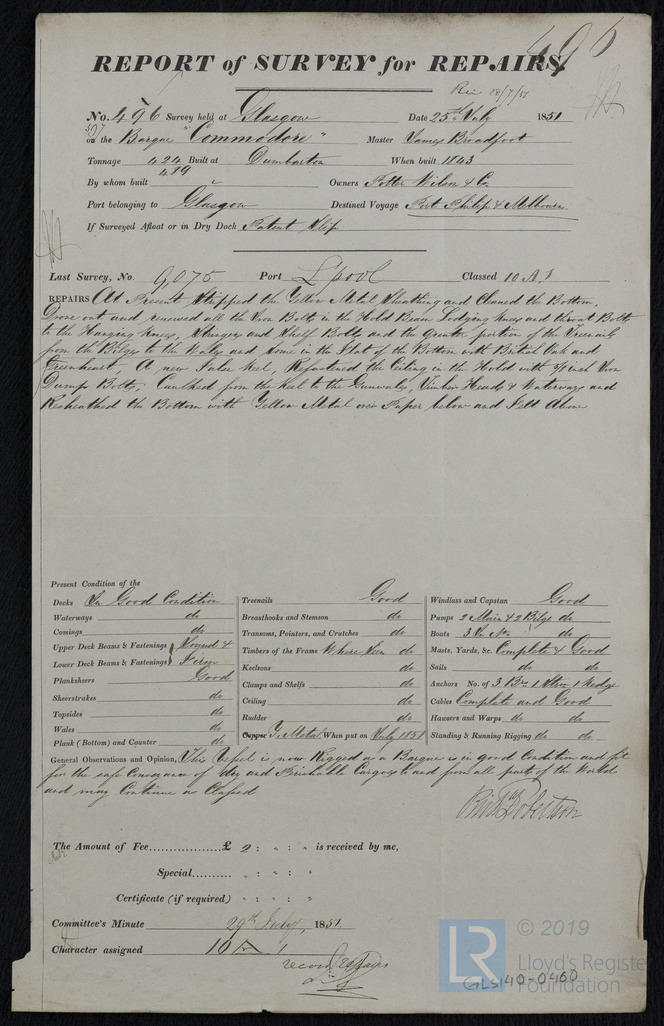 496
REPORT of SURVEY for REPAIRS.
28/7/51
No. 496 Survey held at Glasgow Date 25th July 1851
507
on the Barque "Commodore" Master James Broadfoot
Tonnage 424 Built at Dumbarton When built 1843
489
By whom built Owners Potter Wilson & Co.
Port belonging to Glasgow Destined Voyage Port Philip & Melbourne
If Surveyed Afloat or in Dry Dock Patent Slip
Last Survey, No. 9,075 Port L'pool Classed 10 A.1
REPAIRS At Present Stripped the Yellow Metal Sheathing and Cleaned the Bottom.
Drove out and renewed all the Iron Bolts in the Hold Beam Lodging Knees and throat Bolts
to the Hanging Knees, Stringer and Shelf Bolts and the Greater portion of the Treenails
from the Bilges to the Wales and some in the Flat of the Bottom with British Oak and
Greenheart, A new False Keel, Refastened the Ceiling in the Hold with Inch Iron
Dump Bolts, Caulked from the Keel to the Gunwales, Timber Heads & Waterways and
Resheathed the Bottom with Yellow Metal over Paper below and Felt Above
Present Condition of the
Decks In Good Condition
Waterways do
Comings do
Upper Deck Beams & Fastenings Sound &
Lower Deck Beams & Fastenings Firm
Planksheers Good
Sheerstrakes do
Topsides do
Wales do
Plank (Bottom) and Counter do
Treenails Good
Breasthooks and Stemson do
Transoms, Pointers, and Crutches do
Timbers of the Frame Where Seen do
Keelsons do
Clamps and Shelfs do
Ceiling do
Rudder do
Copper Y. Metal When put on July 1851
Windlass and Capstan Good
Pumps 2 Main & 2 Bilge do
Boats 3 In No. do
Masts, Yards, &c. Complete & Good
Sails do do
Anchors No. of 3 Br. 1 Strm 1 Kedge
Cables Complete and Good
Hawsers and Warps do do
Standing & Running Rigging do do
General Observations and Opinion, This Vessel is now Rigged as a Barque is in good Condition and fit
for the safe Conveyance of dry and Perishable Cargoes to and from all parts of the World
and may Continue as Classed
Robertson
The Amount of Fee £ 2 : " : " is received by me,
Special " : " : "
Certificate (if required) " : " : "
Committee's Minute 29th July, 1851.
Character assigned 10 A 1
record Repairs
LR
© 2019
Lloyd's Register
Foundation
GLS140-0460